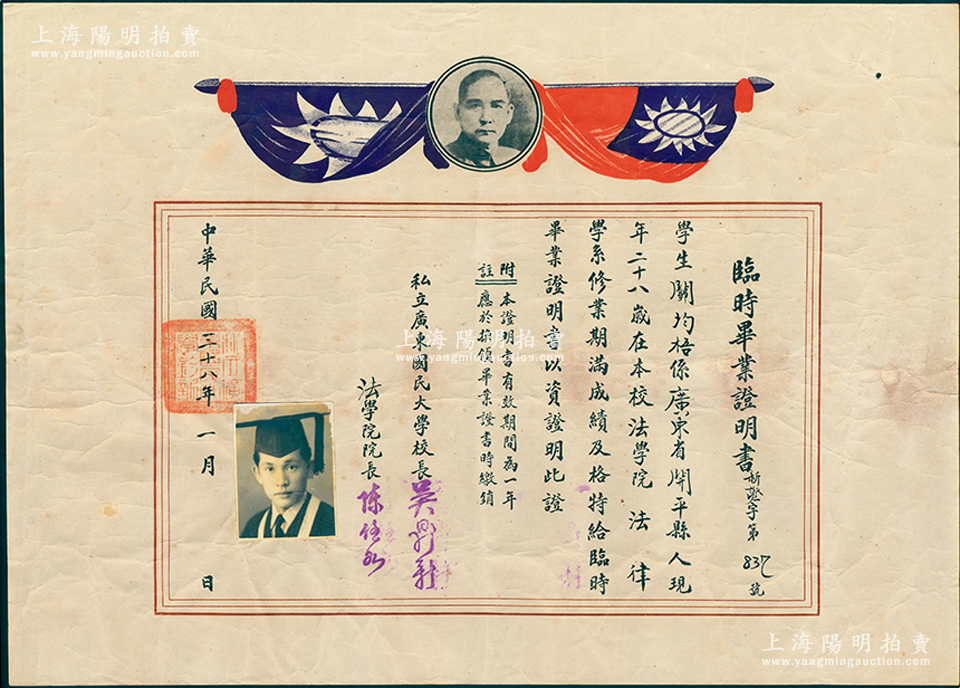 上海陽明拍賣
www.yangmingauction.com
臨時畢業證明書
新證字第837號
學生關均梧係廣東省開平縣人現
年二十八歲在本校法學院法律
學系修業期滿成績及格特給臨時
畢業證明書以資證明此證
附註
本證明書有效期間為一年
應於換領畢業證書時繳銷
私立廣東國民大學校長吳鼎新
法學院院長
中華民國三十八年一月 日
上海陽明拍賣
www.yangmingauction.com
上海陽明拍賣
www.yangmingauction.com